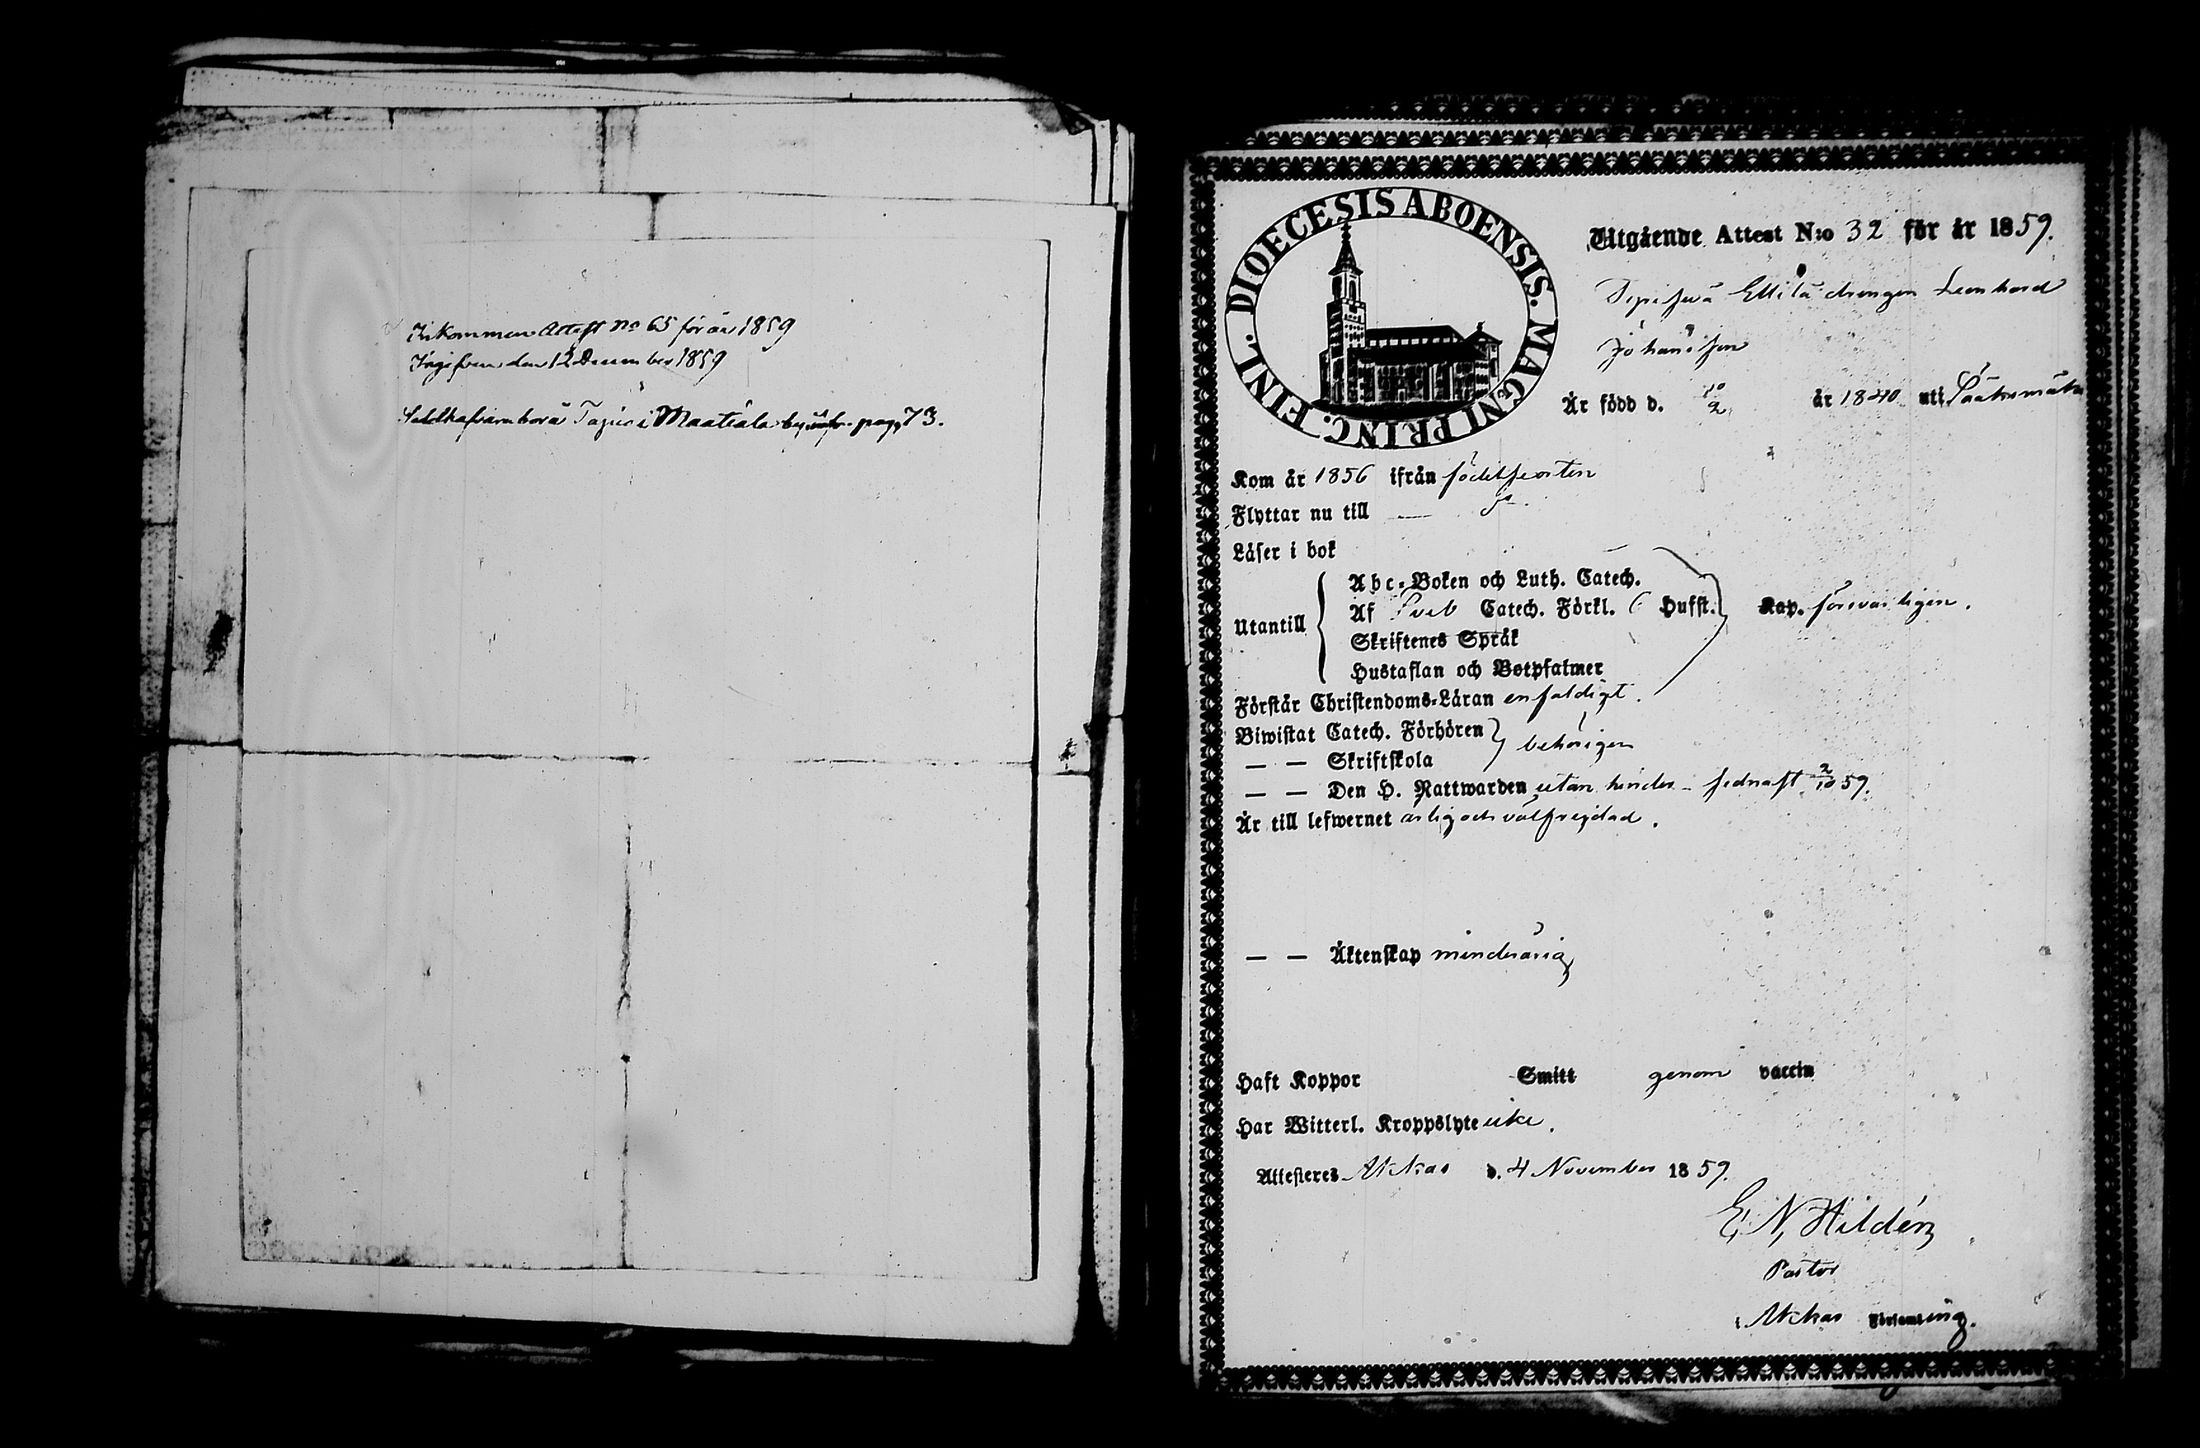 Inkommen Attest No 65 för år 1859
Ingifven den 12 December 1859
i Maatiala by pag 73.
DIOECESIS ABOENSIS. MAGNI PRINC. FINL.
Utgående Attest N:o 32 för år 1859.
drengen Leonhard
Johansson
Är född d. 10/2 år 1840 uti
Kom år 1856 ifrån födelseorten
Flyttar nu till —
Läser i bok
Utantill
Abc-Boken och Luth. Catech.
Af Sveb Catech. Förkl. 6 Hufst. Kap. försvarligen.
Skriftenes Språk
Hustaflan och Botpsalmer
Förstår Christendoms-Läran enfaldigt.
Biwistat Catech. Förhören
behörigen
— — Skriftskola
— — Den H. Nattwarden utan hinder – sednast 2/10 59.
Är till lefwernet ärlig och välfrejdad.
— — Äktenskap minderårig
Haft Koppor Smitt genom vaccin
Har Witterl. Kroppslyte icke.
Attesteres Akkas d. 4 November 1859.
E. N. Hildén
Pastor
i Akkas Församling.